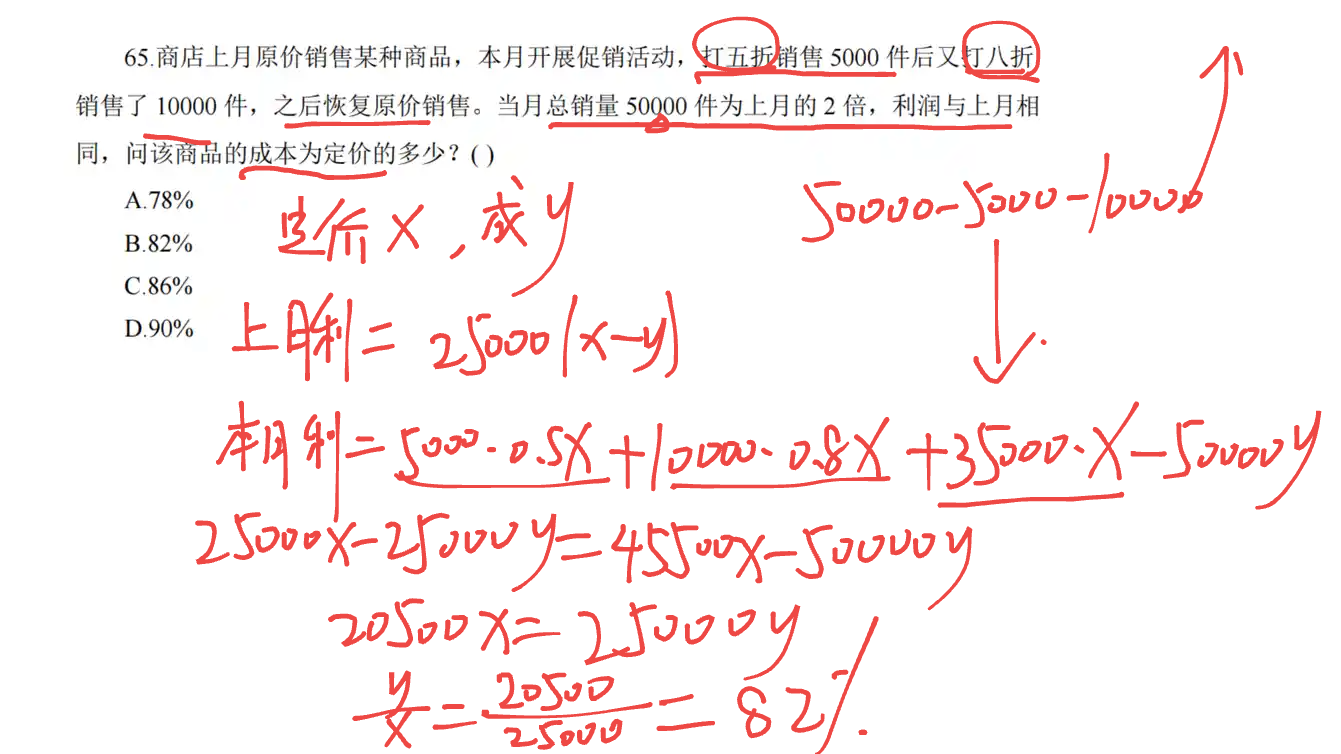 65.商店上月原价销售某种商品，本月开展促销活动，打五折销售 5000 件后又打八折
销售了 10000 件，之后恢复原价销售。当月总销量 50000 件为上月的 2 倍，利润与上月相
同，问该商品的成本为定价的多少？( )
A.78%
B.82%
C.86%
D.90%
50000-5000-10000
定价 x , 成 y
上月利 = 25000(x-y)
本月利=5000·0.5x+10000·0.8x+35000·x-50000y
25000x-25000y=45500x-50000y
20500x=25000y
y/x=20500/25000=82%.